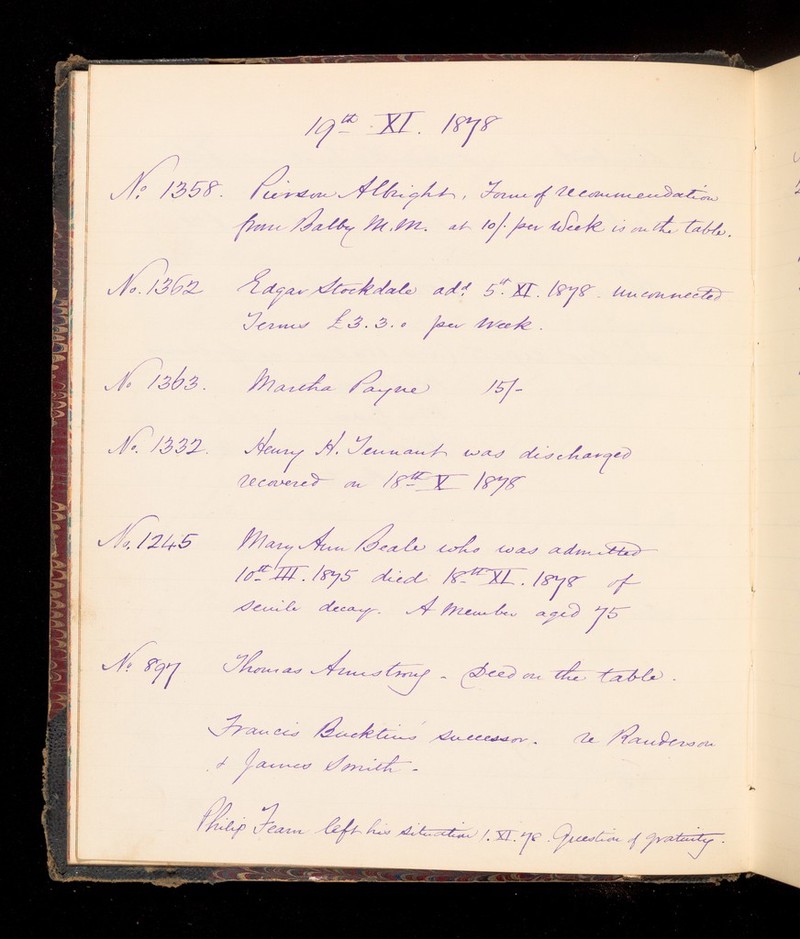 19th. XI. 1878
No. 1358. Pierson Albright. Form of recommendation
from Balby M.M. at 10/- per week is on the table.
No. 1362 Edgar Stockdale add. 5th. XI. 1878. unconnected
Terms £3.3.0 per week.
No. 1363. Martha Payne 15/-
No. 1332. Henry H. Tennant was discharged
recovered on 18th X 1878
No. 1245 Mary Ann Beale who was admitted
10th III. 1875 died 18th XI. 1878 of
senile decay. A Member aged 75
No. 897 Thomas Armstrong - Deed on the table.
Francis successor. re Randerson
& James Smith -
Philip Fearn left his situation 1. XI. 78. Question of gratuity.